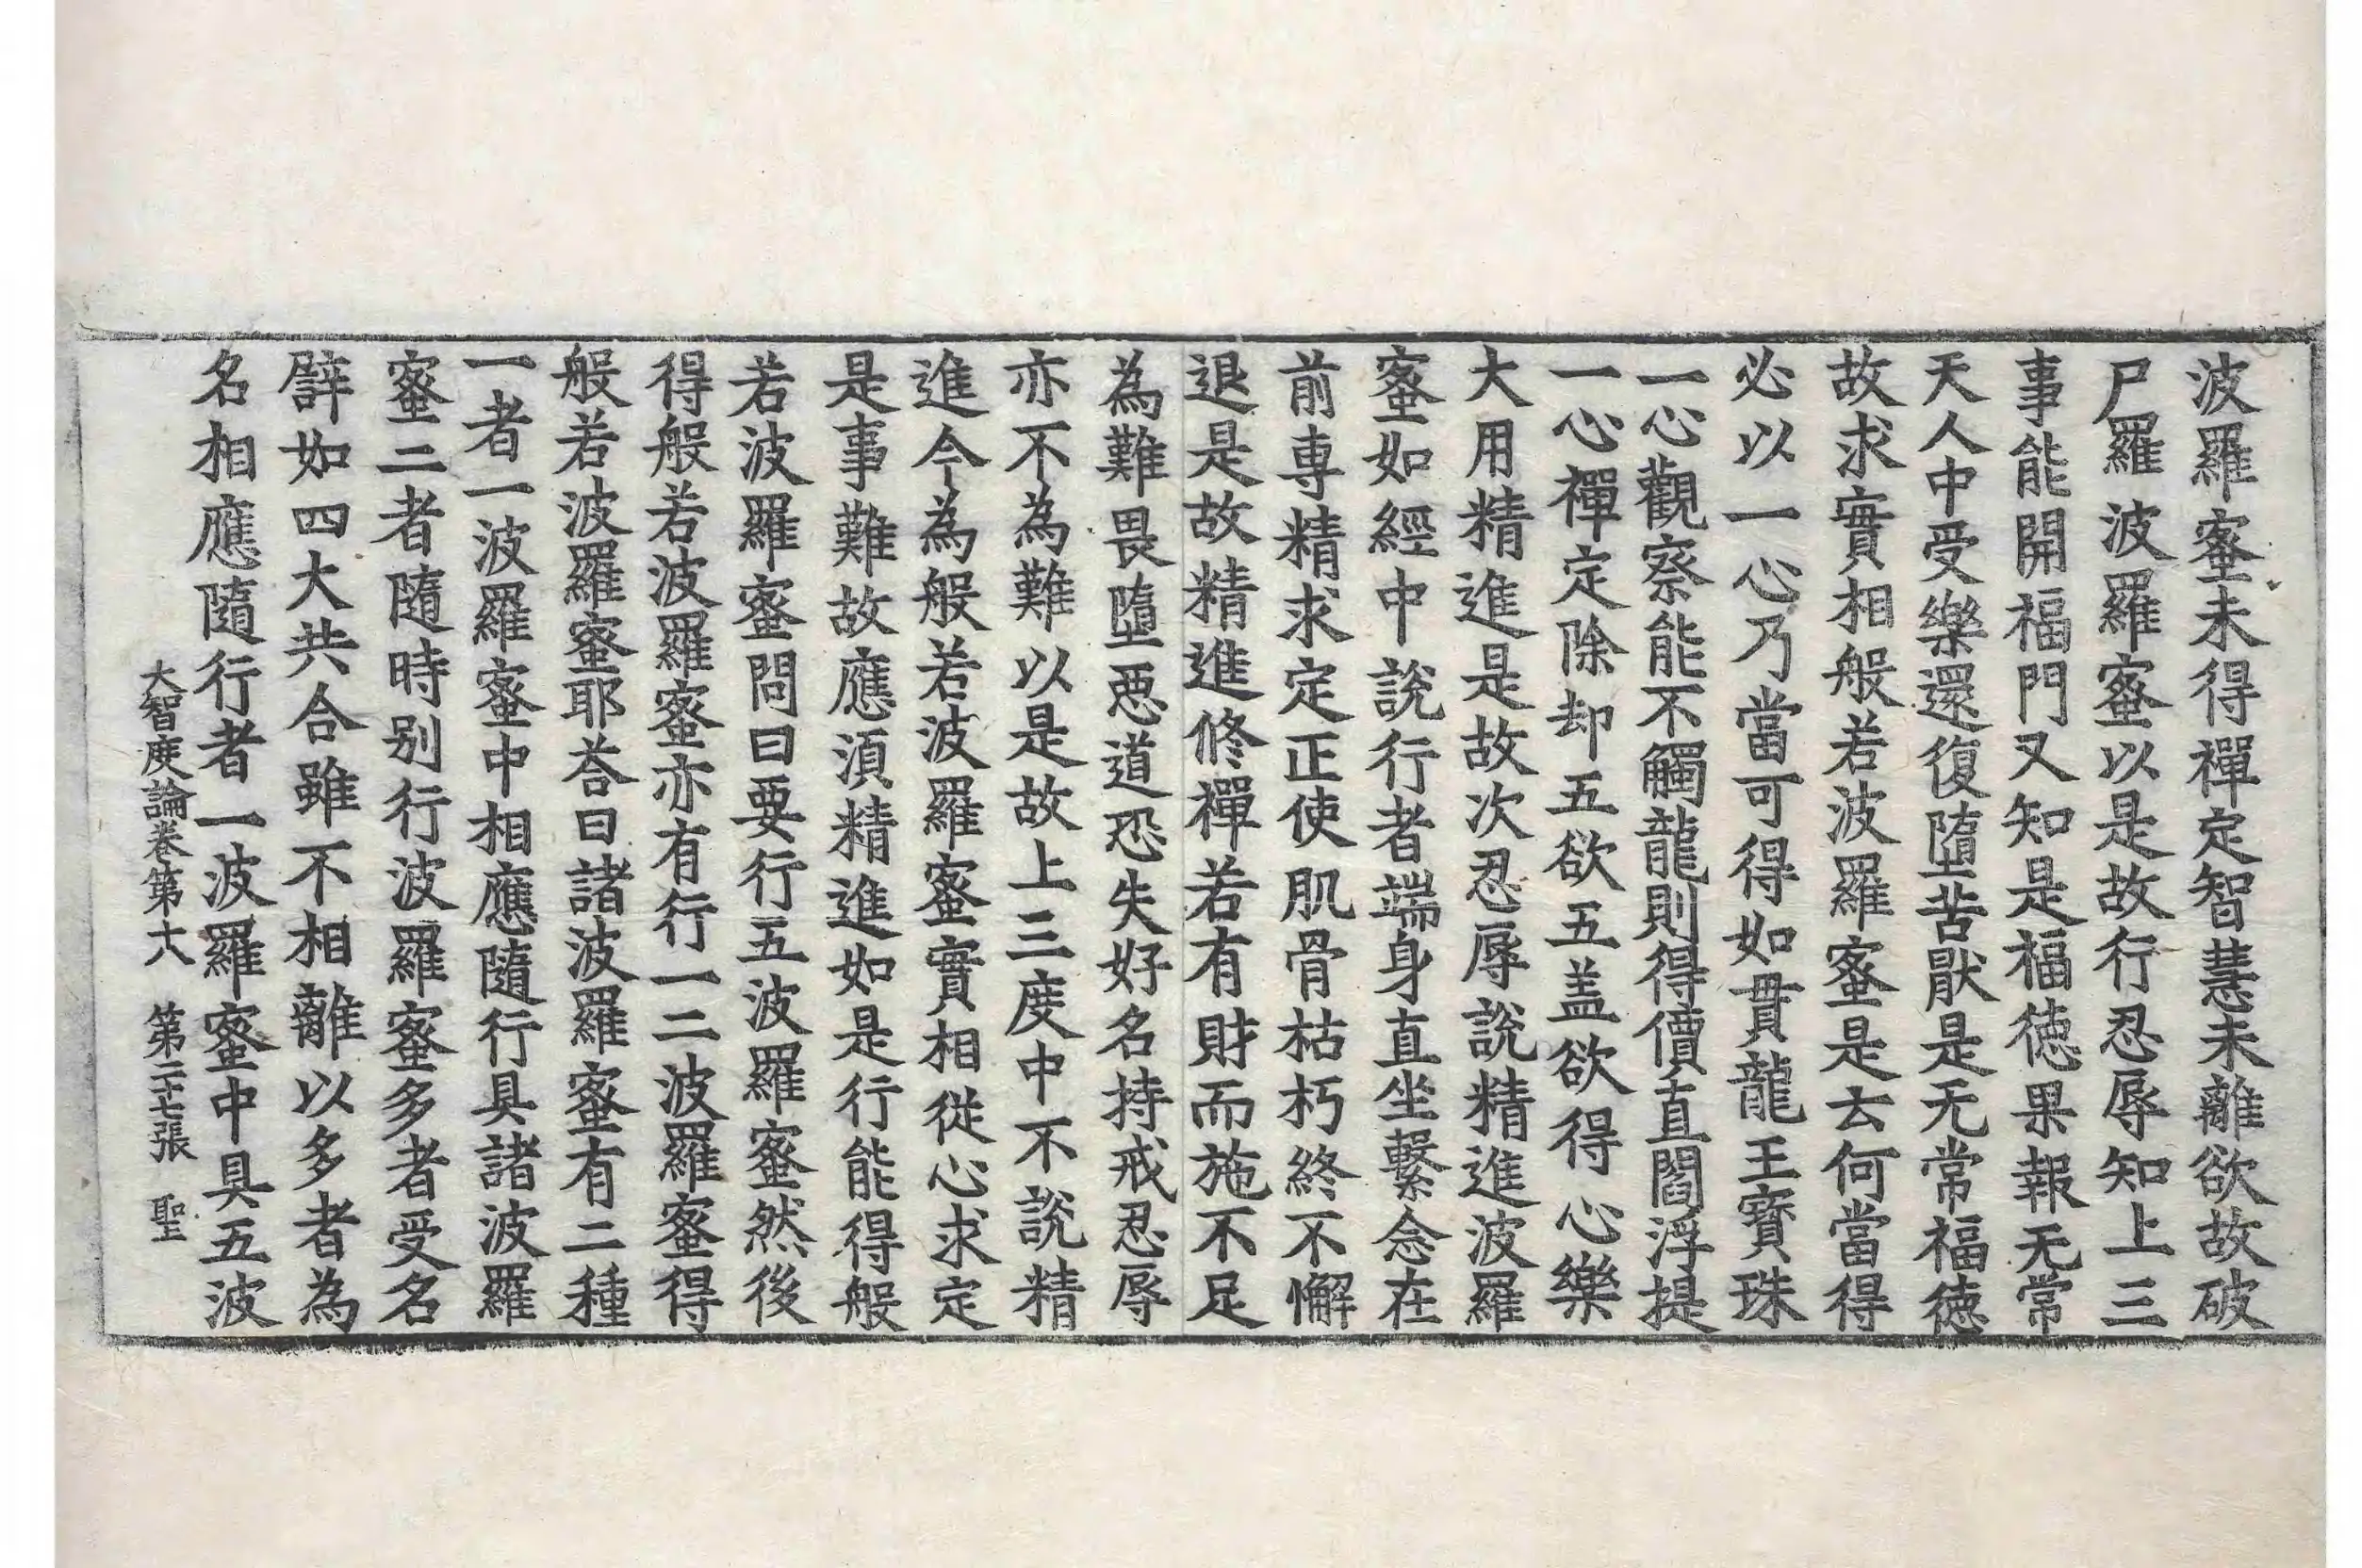 波羅蜜未得禪定智慧未離欲故破
尸羅波羅蜜以是故行忍辱知上三
事能開福門又知是福徳果報无常
天人中受樂還復墮苦猒是无常福徳
故求實相般若波羅蜜是云何當得
必以一心乃當可得如貫龍王寶珠
一心觀察能不觸龍則得價直閻浮提
一心禪定除却五欲五盖欲得心樂
大用精進是故次忍辱說精進波羅
蜜如經中說行者端身直坐繫念在
前專精求定正使肌骨枯朽終不懈
退是故精進修禪若有財而施不足
為難畏墮惡道恐失好名持戒忍辱
亦不為難以是故上三度中不說精
進今為般若波羅蜜實相從心求定
是事難故應湏精進如是行能得般
若波羅蜜問曰要行五波羅蜜然後
得般若波羅蜜亦有行一二波羅蜜得
般若波羅蜜耶荅曰諸波羅蜜有二種
一者一波羅蜜中相應隨行具諸波羅
蜜二者隨時别行波羅蜜多者受名
辟如四大共合雖不相離以多者為
名相應隨行者一波羅蜜中具五波
大智度論卷第十六　第二十七張　聖